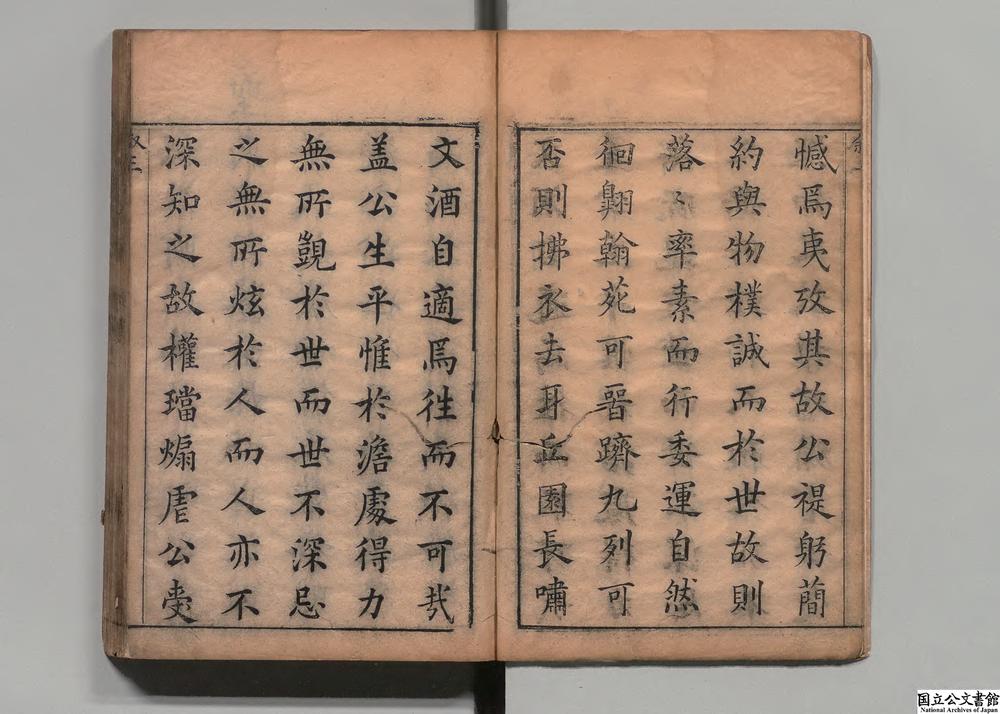 憾焉夷攷其故公禔躬簡
約與物樸誠而於世故則
落〻率素而行委運自然
徊翺翰苑可晉躋九列可
否則拂衣去耳丘園長嘯
文酒自適焉徃而不可哉
盖公生平惟於澹處得力
無所覬於世而世不深忌
之無所炫於人而人亦不
深知之故權璫煽虐公壺
国立公文書館
National Archives of Japan